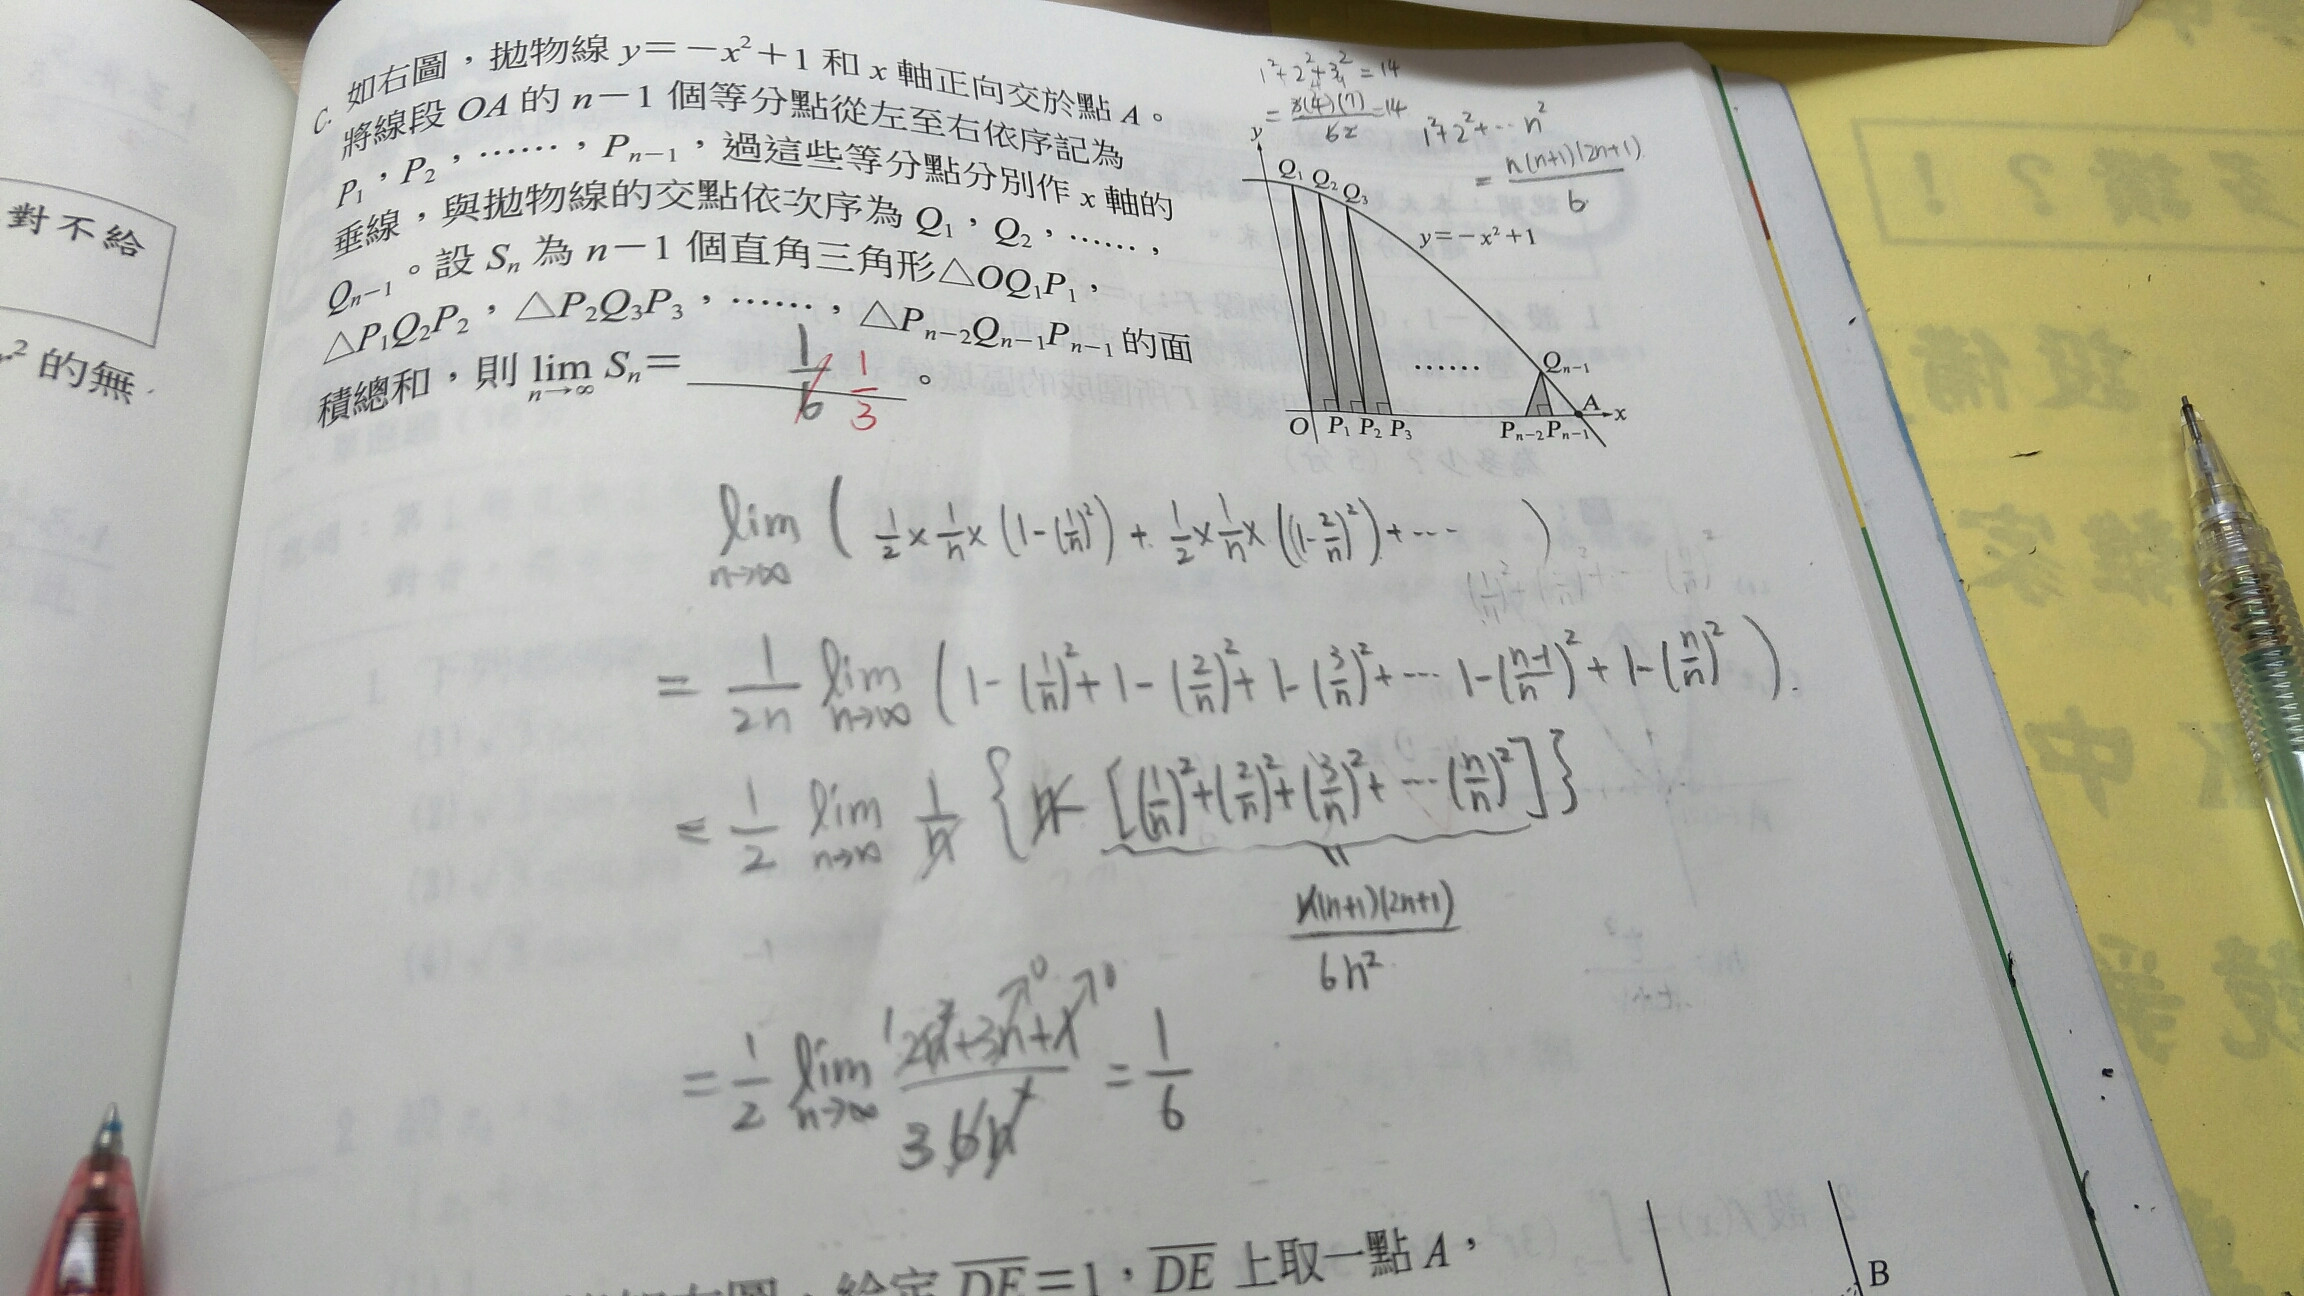 對不給
.² 的無
C. 如右圖，拋物線 y＝－x²＋1 和 x 軸正向交於點 A。
將線段 OA 的 n－1 個等分點從左至右依序記為
P₁，P₂，……，Pₙ₋₁，過這些等分點分別作 x 軸的
垂線，與拋物線的交點依次序為 Q₁，Q₂，……，
Qₙ₋₁。設 Sₙ 為 n－1 個直角三角形△OQ₁P₁，
△P₁Q₂P₂，△P₂Q₃P₃，……，△Pₙ₋₂Qₙ₋₁Pₙ₋₁ 的面
積總和，則 lim n→∞ Sₙ＝ 1/6 1/3 。
1²+2²+3²=14
= 3(4)(7)/6 =14
1²+2²+…n²
= n(n+1)(2n+1)/6
y
Q₁ Q₂ Q₃
y＝－x²＋1
……
Qₙ₋₁
A x
O P₁ P₂ P₃ Pₙ₋₂ Pₙ₋₁
lim n→∞ ( 1/2 × 1/n × (1-(1/n)²) + 1/2 × 1/n × ((1-2/n)²) + … )
= 1/2n lim n→∞ ( 1-(1/n)² + 1-(2/n)² + 1-(3/n)² + … 1-(n-1/n)² + 1-(n/n)² ).
= 1/2 lim n→∞ 1/n { n- [(1/n)²+(2/n)²+(3/n)²+ … (n/n)²] }
n(n+1)(2n+1)/6n²
= 1/2 lim n→∞ 2n²+3n+1/6n² = 1/6
0 0
1
3
DE＝1，DE 上取一點 A，
B